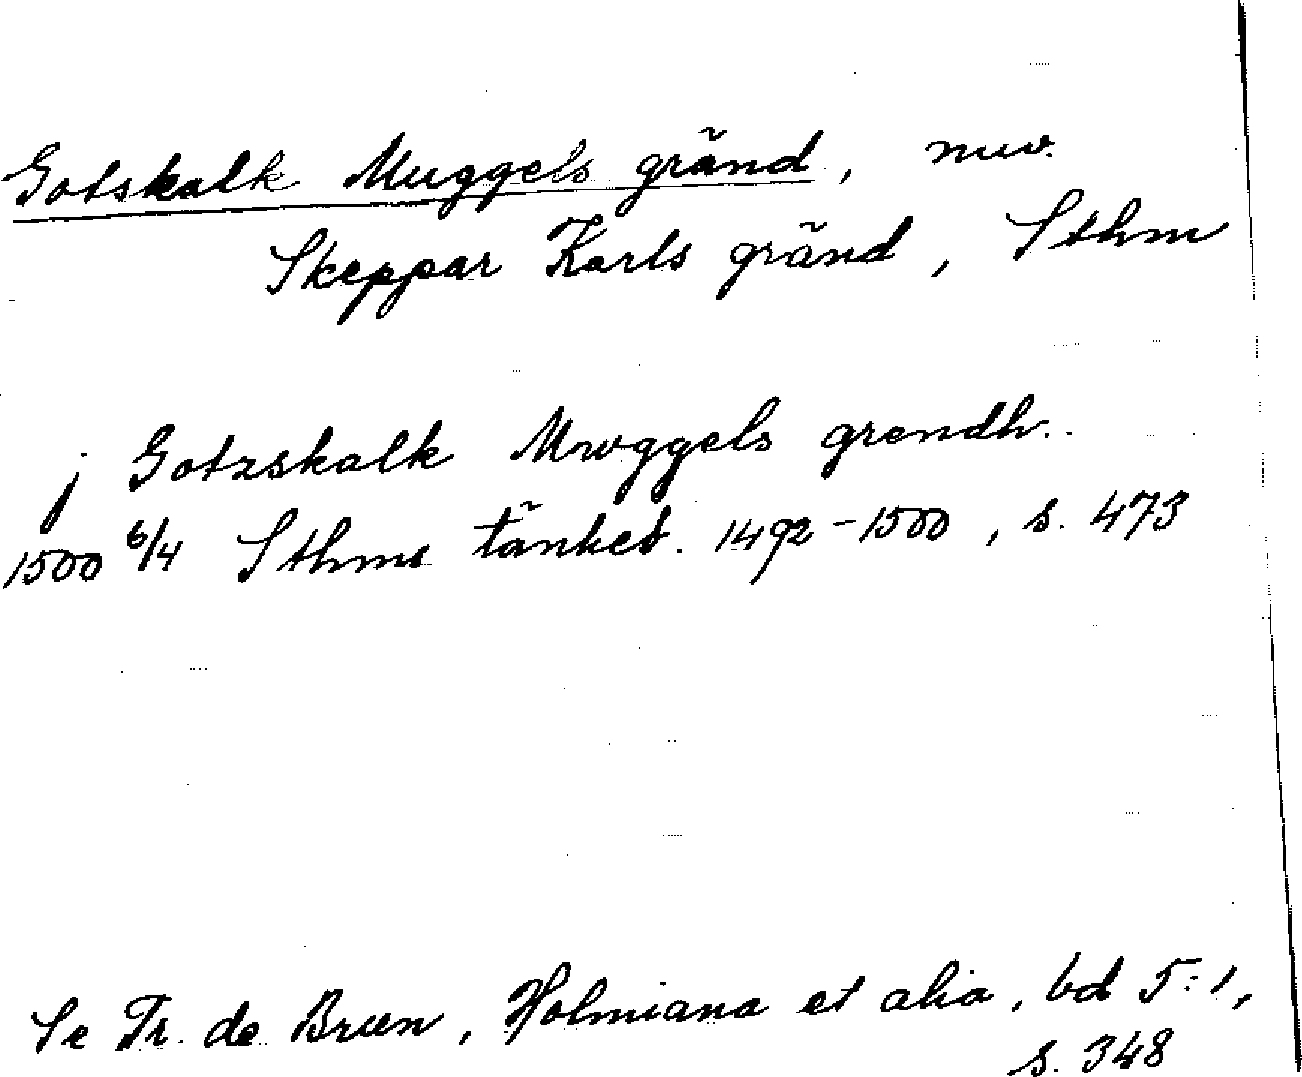 Gotskalk Muggels gränd, nuv.
Skeppar Karls gränd, Sthm
j Gotzskalk Mwggels grendh.
1500 6/4 Sthms tänkeb. 1492-1500, s. 473
Se Fr. de Brun, Holmiana et alia, bd 5:1,
s. 348